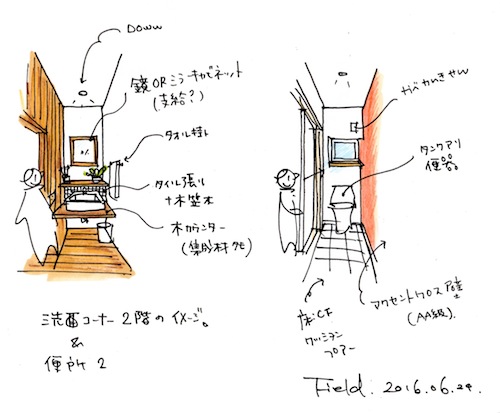 Down
鏡ORミラーキャビネット
(支給?)
タオル掛ケ
タイル張リ
+木笠木
木カウンター
(集成材クモ)
洗面コーナー2階のイメージ。
&
便所2
タンクアリ
便器
床:CF
クッション
フロアー
アクセントクロス壁
(AA級)
Field. 2016.06.24.